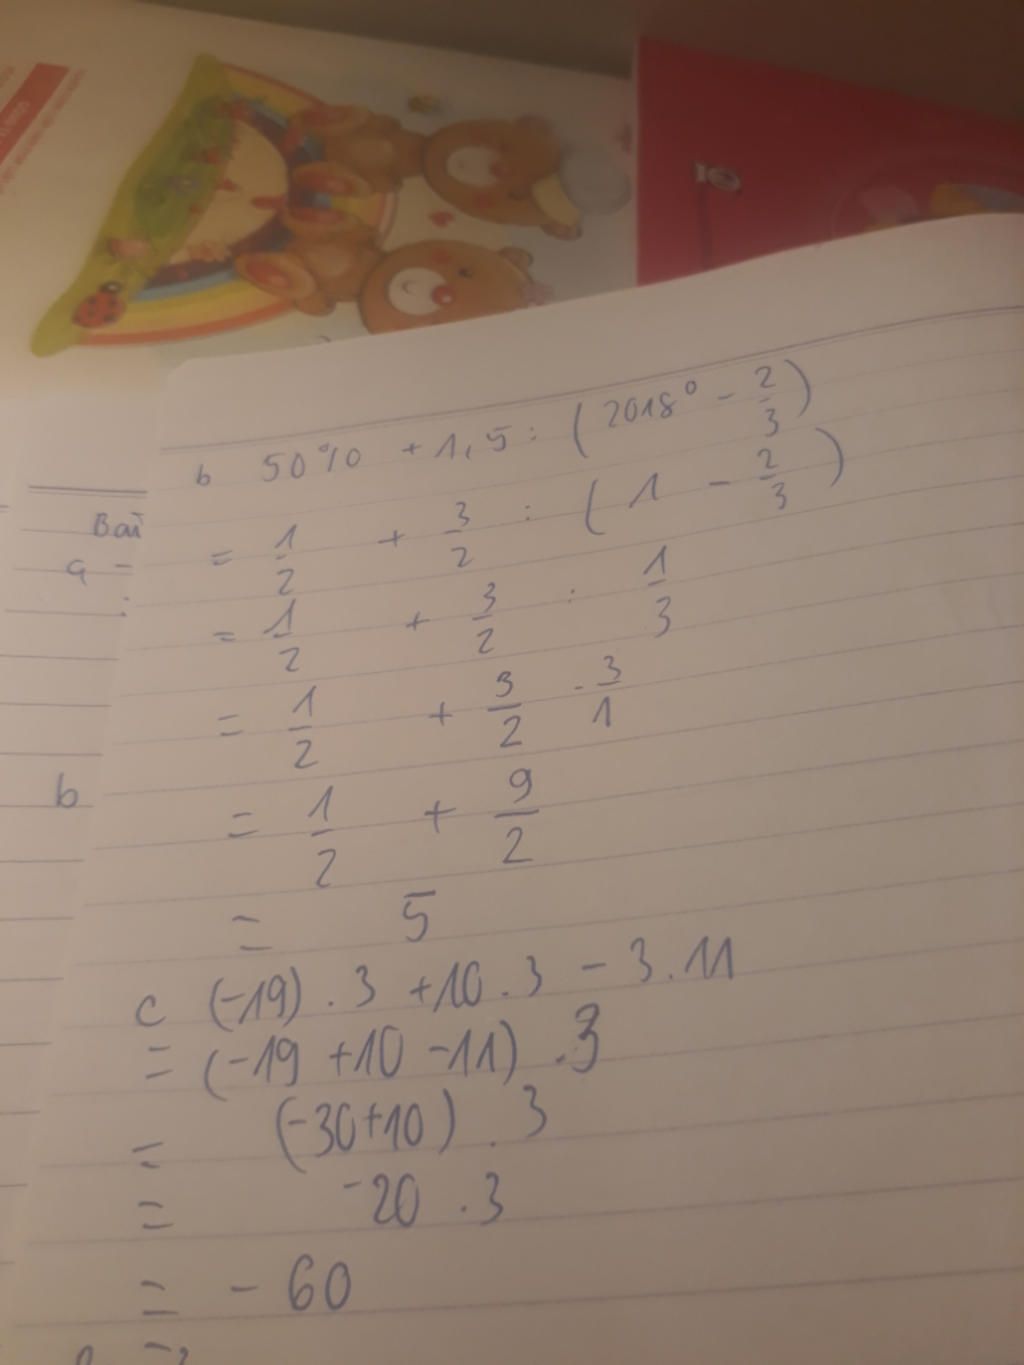 b 50% + 1,5 : (2018⁰ - 2/3)
= 1/2 + 3/2 : (1 - 2/3)
= 1/2 + 3/2 : 1/3
= 1/2 + 3/2 . 3/1
= 1/2 + 9/2
= 5
c (-19) . 3 + 10 . 3 - 3 . 11
= (-19 + 10 - 11) . 3
= (-30 + 10) . 3
= -20 . 3
= - 60
Bài
a =
b